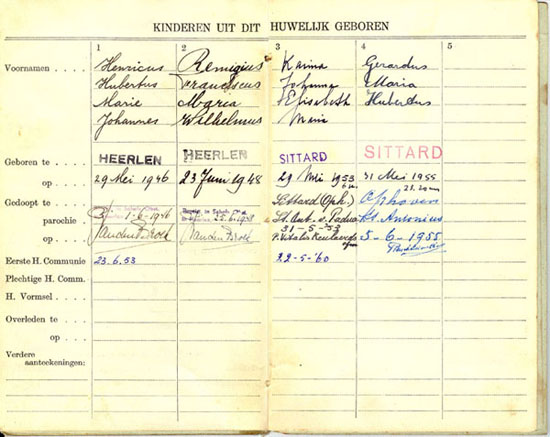 KINDEREN UIT DIT HUWELIJK GEBOREN
1 2 3 4 5
Voornamen . . . . Henricus Remigius Karina Gerardus
Hubertus Franciscus Johanna Maria
Marie Maria Elisabeth Hubertus
Johannes Wilhelmus Maria
Geboren te . . . . HEERLEN HEERLEN SITTARD SITTARD
op . . . . 29 Mei 1946 23 Juni 1948 29 Mei 1953 31 Mei 1955
Gedoopt te . . . . 1-6-1946 Sittard (Oph.) Ophoven
parochie St. Ant. v. Padua St. Antonius
op . . . . 31-5-53 5-6-1955
Eerste H. Communie 23.6.53 22-5-'60
Plechtige H. Comm.
H. Vormsel . . . .
Overleden te . . . .
op . . . .
Verdere
aanteekeningen: